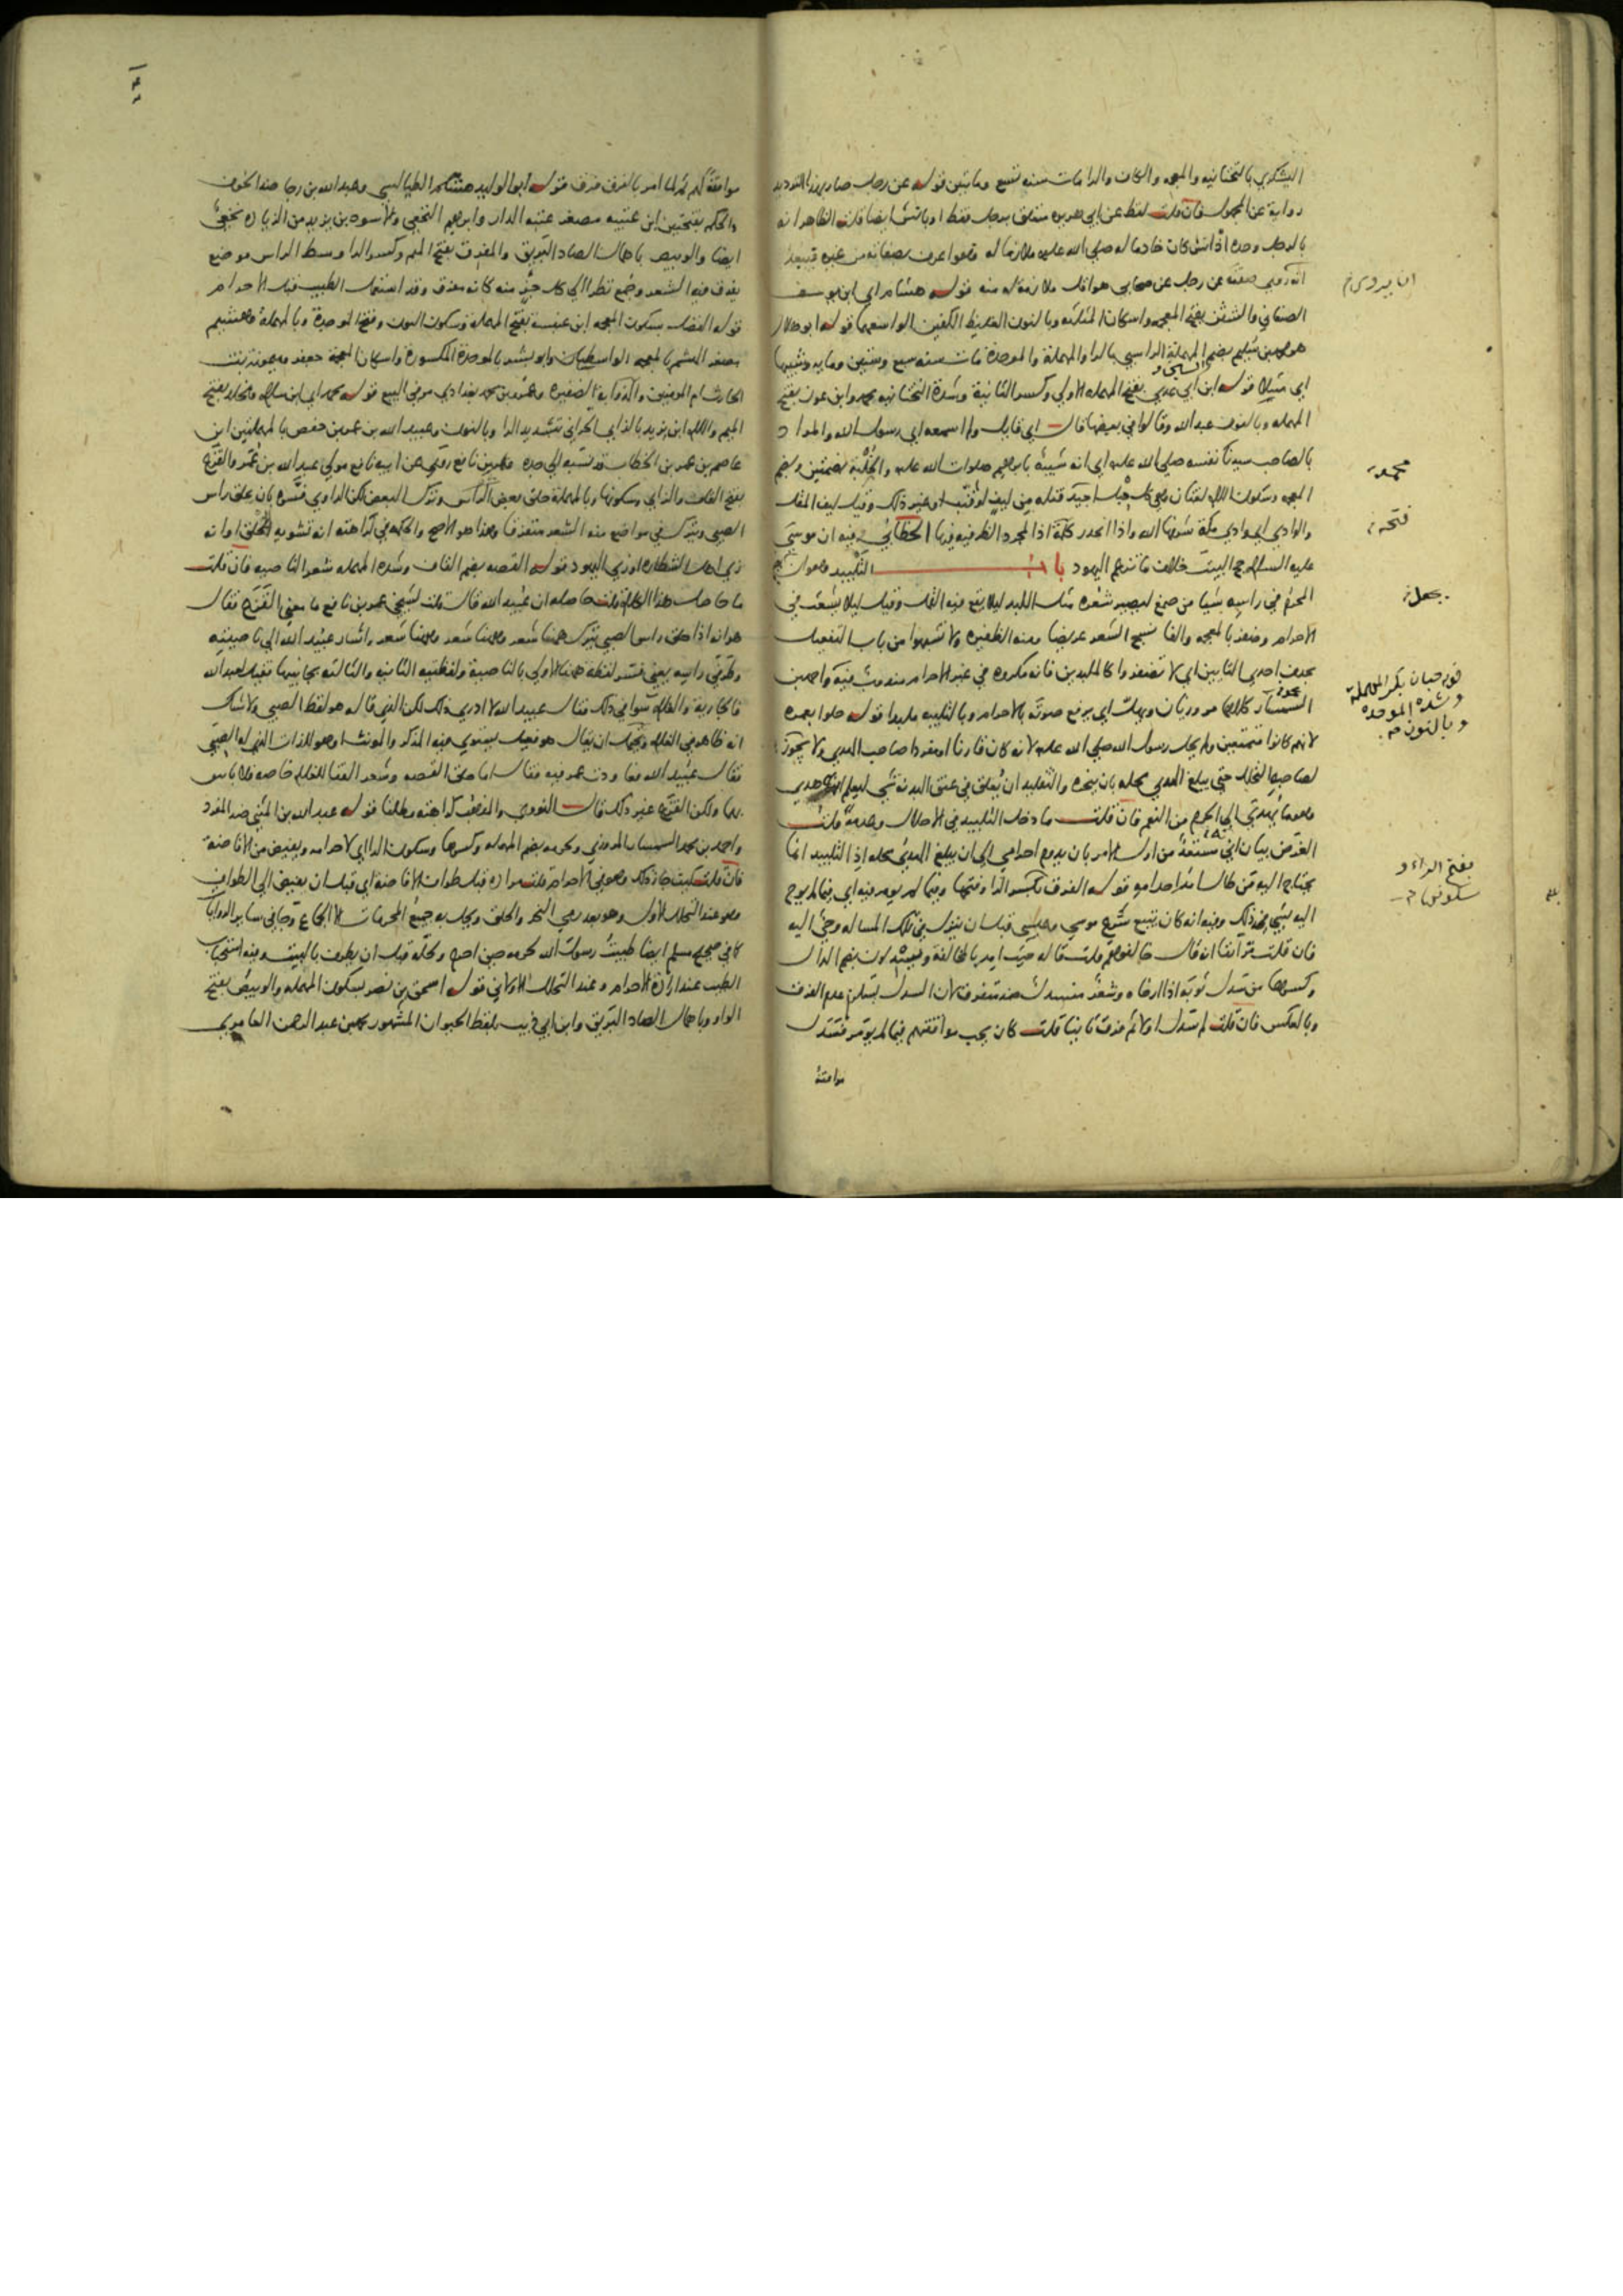 اليشكري بالتحتانية والمعجمة والكاف والراء مات سنة تسع ومائتين قوله عن رجل صار بهذا الترديد
رواية عن المجهول فان قلت لفظ عن ابي هريرة متعلق برجل فقط او بانس ايضا قلت الظاهر انه
بالرجل وحده اذ انس كان خادما له صلى الله عليه ملازما له وهو اعرف بصفاته من غيره فيبعد
انه روى صفته عن رجل عن صحابي هو اقل ملازمة له منه قوله هشام اي ابن يوسف
الصنعاني والشثن بفتح المعجمة واسكان المثلثة وبالنون الغليظ الكفين الواسعهما قوله ابو هلال
هو محمد بن سليم بضم المهملة الراسبي بالراء والمهملة والموحدة مات سنة سبع وستين ومايه وشبيها
اي مثيلا قوله ابن ابي عدي بفتح المهملة الاولى وكسر الثانية وشدة التحتانية محمد وابن عون بفتح
المهملة وبالنون عبد الله وقالوا في بعضها قال اي قايل ولم اسمعه اي رسول الله والمراد
بالصاحب سيدنا نفسه صلى الله عليه اي انه شبيه بابراهيم صلوات الله عليه والخلبة بضمتين وبضم
المعجمة وسكون اللام لغتان وهي كل حبل اجيد فتله من ليف او قنب او غير ذلك وقيل ليف المقل
والوادي اي وادي مكة شرفها الله واذا انحدر كلمة اذا لمجرد الظرفية فيها الخطابي فيه ان موسى
عليه السلام حج البيت خلاف ما تزعم اليهود باب التلبيد وهو ان يجمع
المحرم في راسه شيا من صمغ ليصير شعره مثل اللبد ليلا يقع فيه القمل وقيل ليلا يشعث في
الاحرام وضفر بالمعجمة والفا نسج الشعر عريضا ومنه الظفيرة ولا تشبهوا من باب التفعيل
بحذف احدي التايين اي لا تضفروا كالملبدين فانه مكروه في غير الاحرام مندوب فيه واحمد بن
محمد السمسار كلاهما مروزيان ويهل اي يرفع صوته بالاحرام وبالتلبية ملبدا قوله حلوا بعمرة
لانهم كانوا متمتعين ولم يحل رسول الله صلى الله عليه لانه كان قارنا او مفردا صاحب الهدي ولا يجوز
لصاحبها التحلل حتى يبلغ الهدي محله بان ينحره والتقليد ان يعلق في عنق البدنة شي ليعلم انها هدي
وهو ما يهدى الى الحرم من النعم فان قلت ما دخل التلبيد في الاحلال وعدمه قلت
الغرض بيان اني مستعد من اول الامر بان يدوم احرامي الى ان يبلغ الهدي محله اذ التلبيد انما
يحتاج اليه من طال امد احرامه قوله الفرق بكسر الراء وفتحها وفيما لم يومر فيه اي فيما لم يوح
اليه شي في ذلك وفيه انه كان يتبع شرع موسى وعيسى قبل ان ينزل في تلك المسالة وحي اليه
فان قلت مر انفا انه قال خالفوهم قلت قاله حيث امر بالمخالفة ويسدلون بضم الدال
وكسرها من سدل ثوبه اذا ارخاه وشعر منسدل ضد متفرق لان السدل يستلزم عدم الفرق
وبالعكس فان قلت لم سدل اولا ثم فرق ثانيا قلت كان يحب موافقتهم فيما لم يومر فسدل
موافقة
محمد
فتحة
يجعل
قوله حبان بكسر المهملة
وشدة الموحدة
وبالنون
بفتح الراء و
سكونها
موافقة لهم ثم لما امر بالفرق فرق قوله ابو الوليد هشام الطيالسي وعبد الله بن رجا ضد الخوف
والحكم بفتحتين ابن عتيبة مصغر عتبة الدار وابراهيم النخعي والاسود بن يزيد من الزيادة نخعي
ايضا والوبيص باهمال الصاد البريق والمفرق بفتح الميم وكسر الراء وسط الراس موضع
يفرق فيه الشعر وجمع نظرا الى كل جزء منه كانه مفرق وقد استعمل الطيب قبل الاحرام
قوله الفضل بسكون المعجمة ابن عنبسة بفتح المهملة وسكون النون وفتح الموحدة وبالمهملة وهشيم
مصغر الهشم بالمعجمة الواسطيان وابو بشر بالموحدة المكسورة واسكان المعجمة جعفر وميمونة بنت
الحارث ام المومنين والذوابة الضفيرة وعمرو بن محمد بغدادي مر في البيع قوله محمد اي ابن سلام ومخلد بفتح
الميم واللام ابن يزيد بالزاي الحراني بتشديد الراء وبالنون وعبيد الله بن عمر بن حفص بالمهملتين ابن
عاصم بن عمر بن الخطاب قد نسبه الى جده وعمر بن نافع روى عن ابيه نافع مولى عبد الله بن عمر والقزع
بفتح القاف والزاي وسكونها وبالمهملة حلق بعض الراس وترك البعض لكن الراوي فسره بان حلق راس
الصبي وبترك في مواضع منه الشعر متفرقا وهذا هو الاصح والحكمة في كراهته انه تشويه الخلق او انه
زي اهل الشطارة او زي اليهود قوله القصة بضم القاف وشدة المهملة شعر الناصية فان قلت
ما حاصل هذا الكلام قلت حاصله ان عبيد الله قال قلت لشيخي عمر بن نافع ما معنى القزع فقال
هو انه اذا حلق راس الصبي يترك ههنا شعر وههنا شعر وههنا شعر واشار عبيد الله الى ناصيته
وطرفي راسه يعني فسر لفظة ههنا الاولى بالناصية ولفظتيه الثانية والثالثة بجانبيها فقيل لعبد الله
فالجارية والغلام سوا في ذلك فقال عبيد الله لا ادري ذلك لكن الذي قاله هو لفظ الصبي ولا شك
انه ظاهر في الغلام ويحتمل ان يقال هو فعيل يستوي فيه المذكر والمونث او هو للذات التي لها الصبي
فقال عبيد الله فعاودت عمر فيه فقال اما حلق القصة وشعر القفا للغلام خاصة فلا باس
بهما ولكن القزع غير ذلك قال النووي والمذهب كراهته مطلقا قوله عبد الله بن المثنى ضد المفرد
واحمد بن محمد السمسار المروزي ولحرمه بضم المهملة وكسرها وسكون الراء اي لاحرامه ويفيض من الافاضة
فان قلت كيف جاز ذلك وهو في الاحرام قلت مراده قبل طواف الافاضة اي قبل ان يفيض الى الطواف
وهو عند التحلل الاول وهو بعد رمي النحر والحلق ويحل به جميع المحرمات الا الجماع وجا في ساير الروايات
كما في صحيح مسلم ايضا طيبت رسول الله لحرمه حين احرم ولحله قبل ان يطوف بالبيت وفيه استحباب
الطيب عند ارادة الاحرام وعند التحلل الاول قوله اسحق بن نصر بسكون المهملة والوبيص بفتح
الواو وباهمال الصاد البريق وابن ابي ذيب بلفظ الحيوان المشهور محمد بن عبد الرحمن العامري